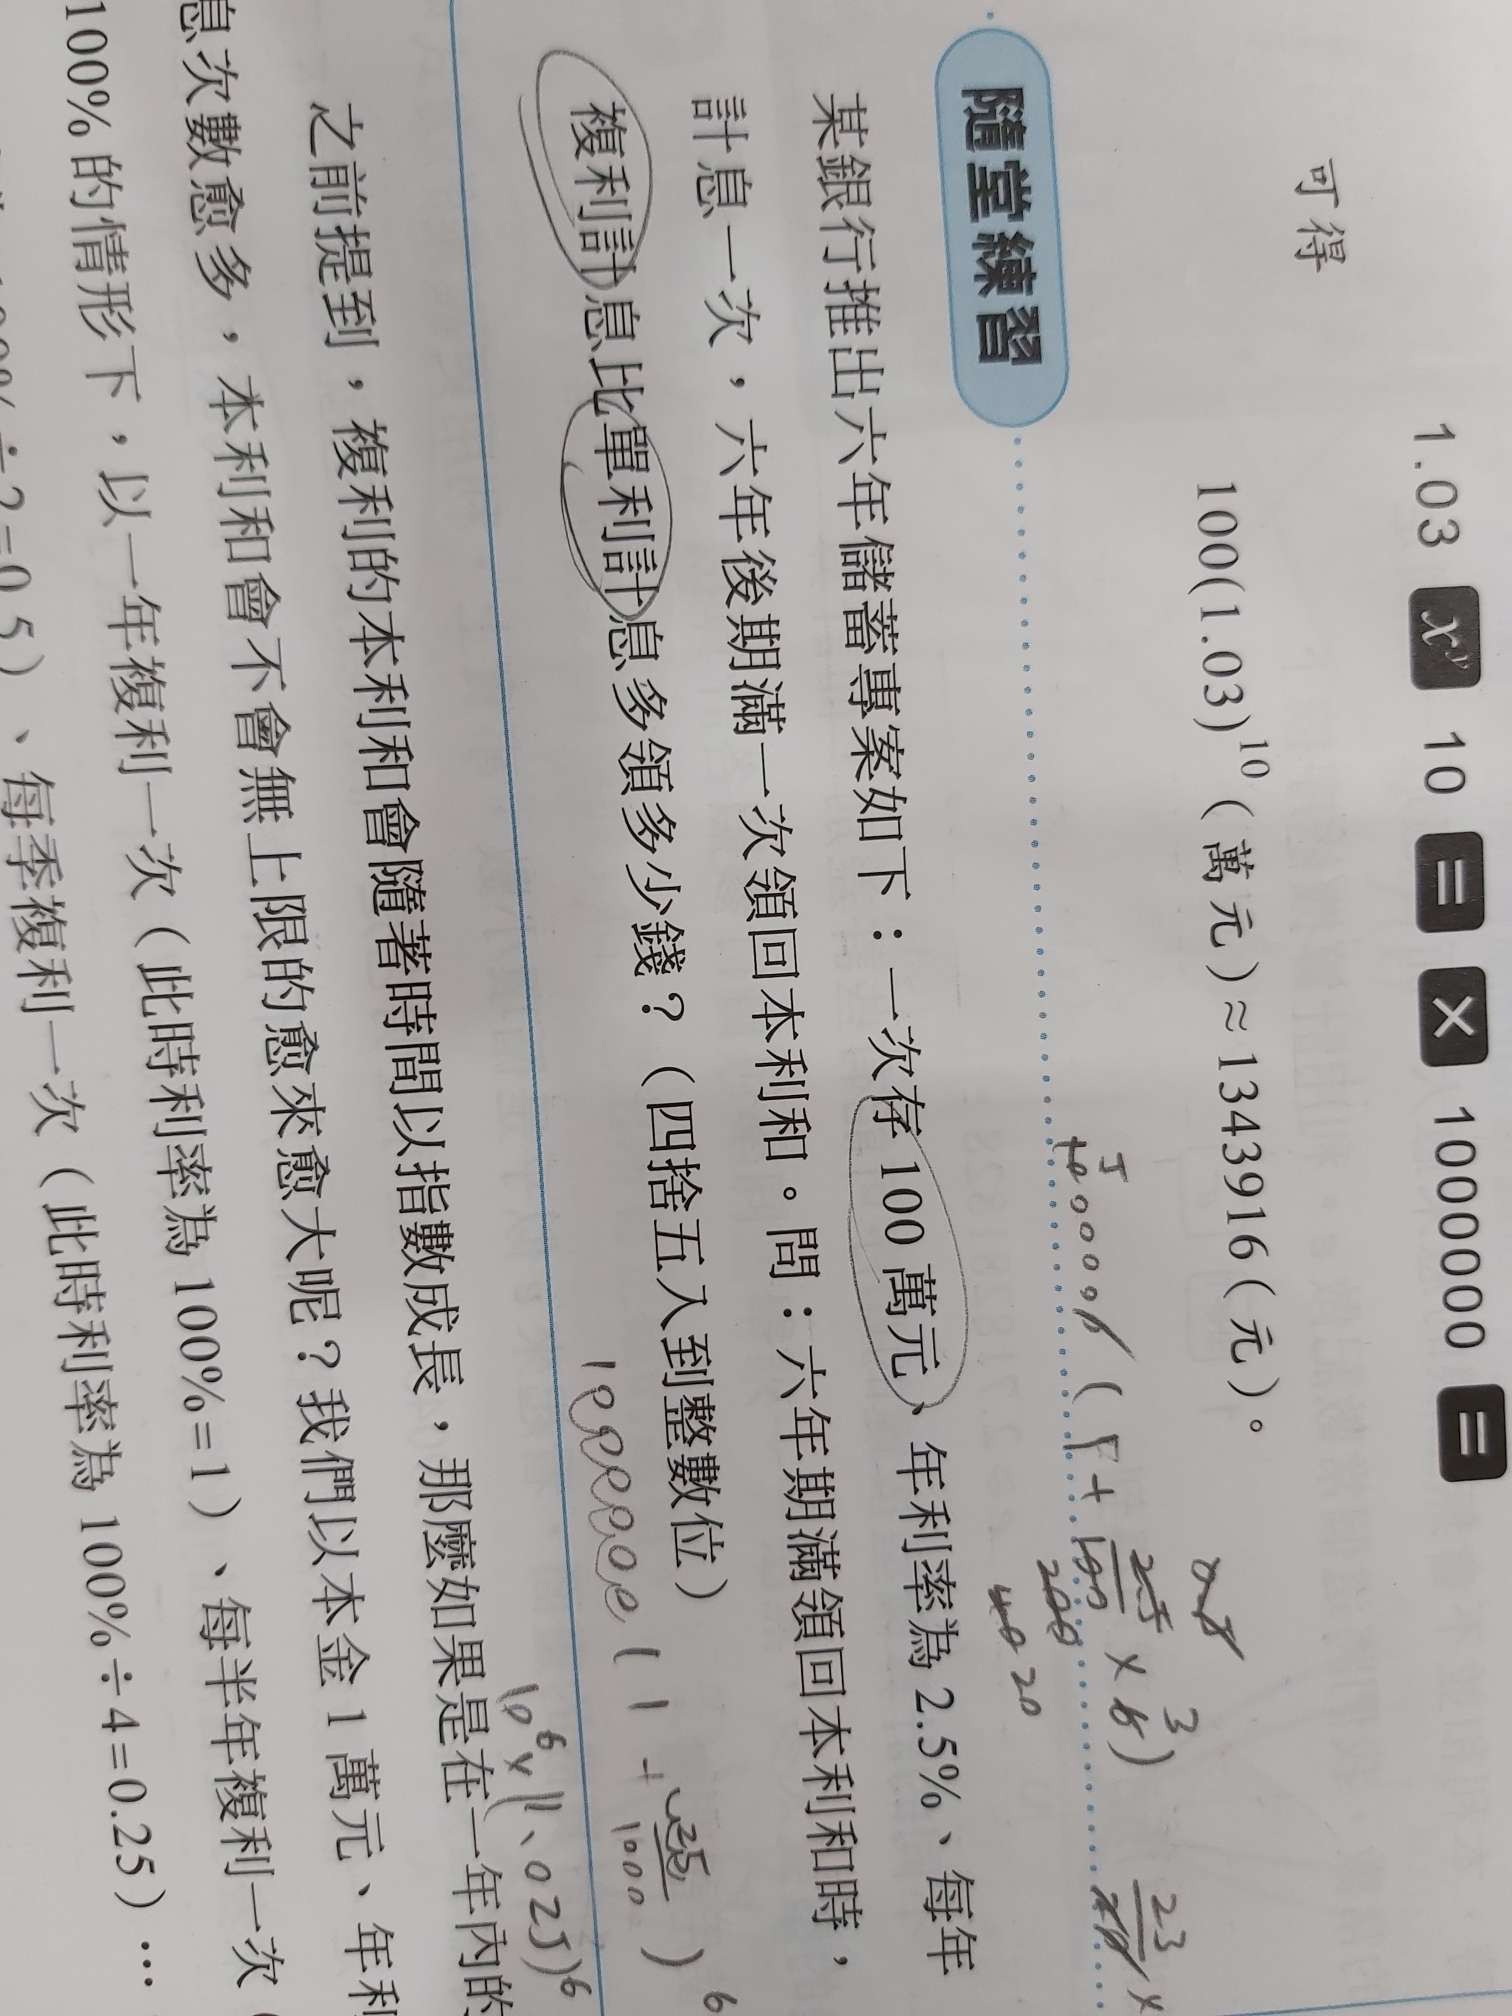 1.03 xʸ 10 = × 1000000 =
可得
100(1.03)¹⁰（萬元）≈1343916（元）。
隨堂練習
某銀行推出六年儲蓄專案如下：一次存 100 萬元、年利率為 2.5%、每年
計息一次，六年後期滿一次領回本利和。問：六年期滿領回本利和時，
複利計息比單利計息多領多少錢？（四捨五入到整數位）
1000000(1+25/1000)⁶
10⁶×(1.025)⁶
之前提到，複利的本利和會隨著時間以指數成長，那麼如果是在一年內的
息次數愈多，本利和會不會無上限的愈來愈大呢？我們以本金 1 萬元、年利
100%的情形下，以一年複利一次（此時利率為 100%=1）、每半年複利一次（
÷2=0.5）、每季複利一次（此時利率為 100%÷4=0.25）…